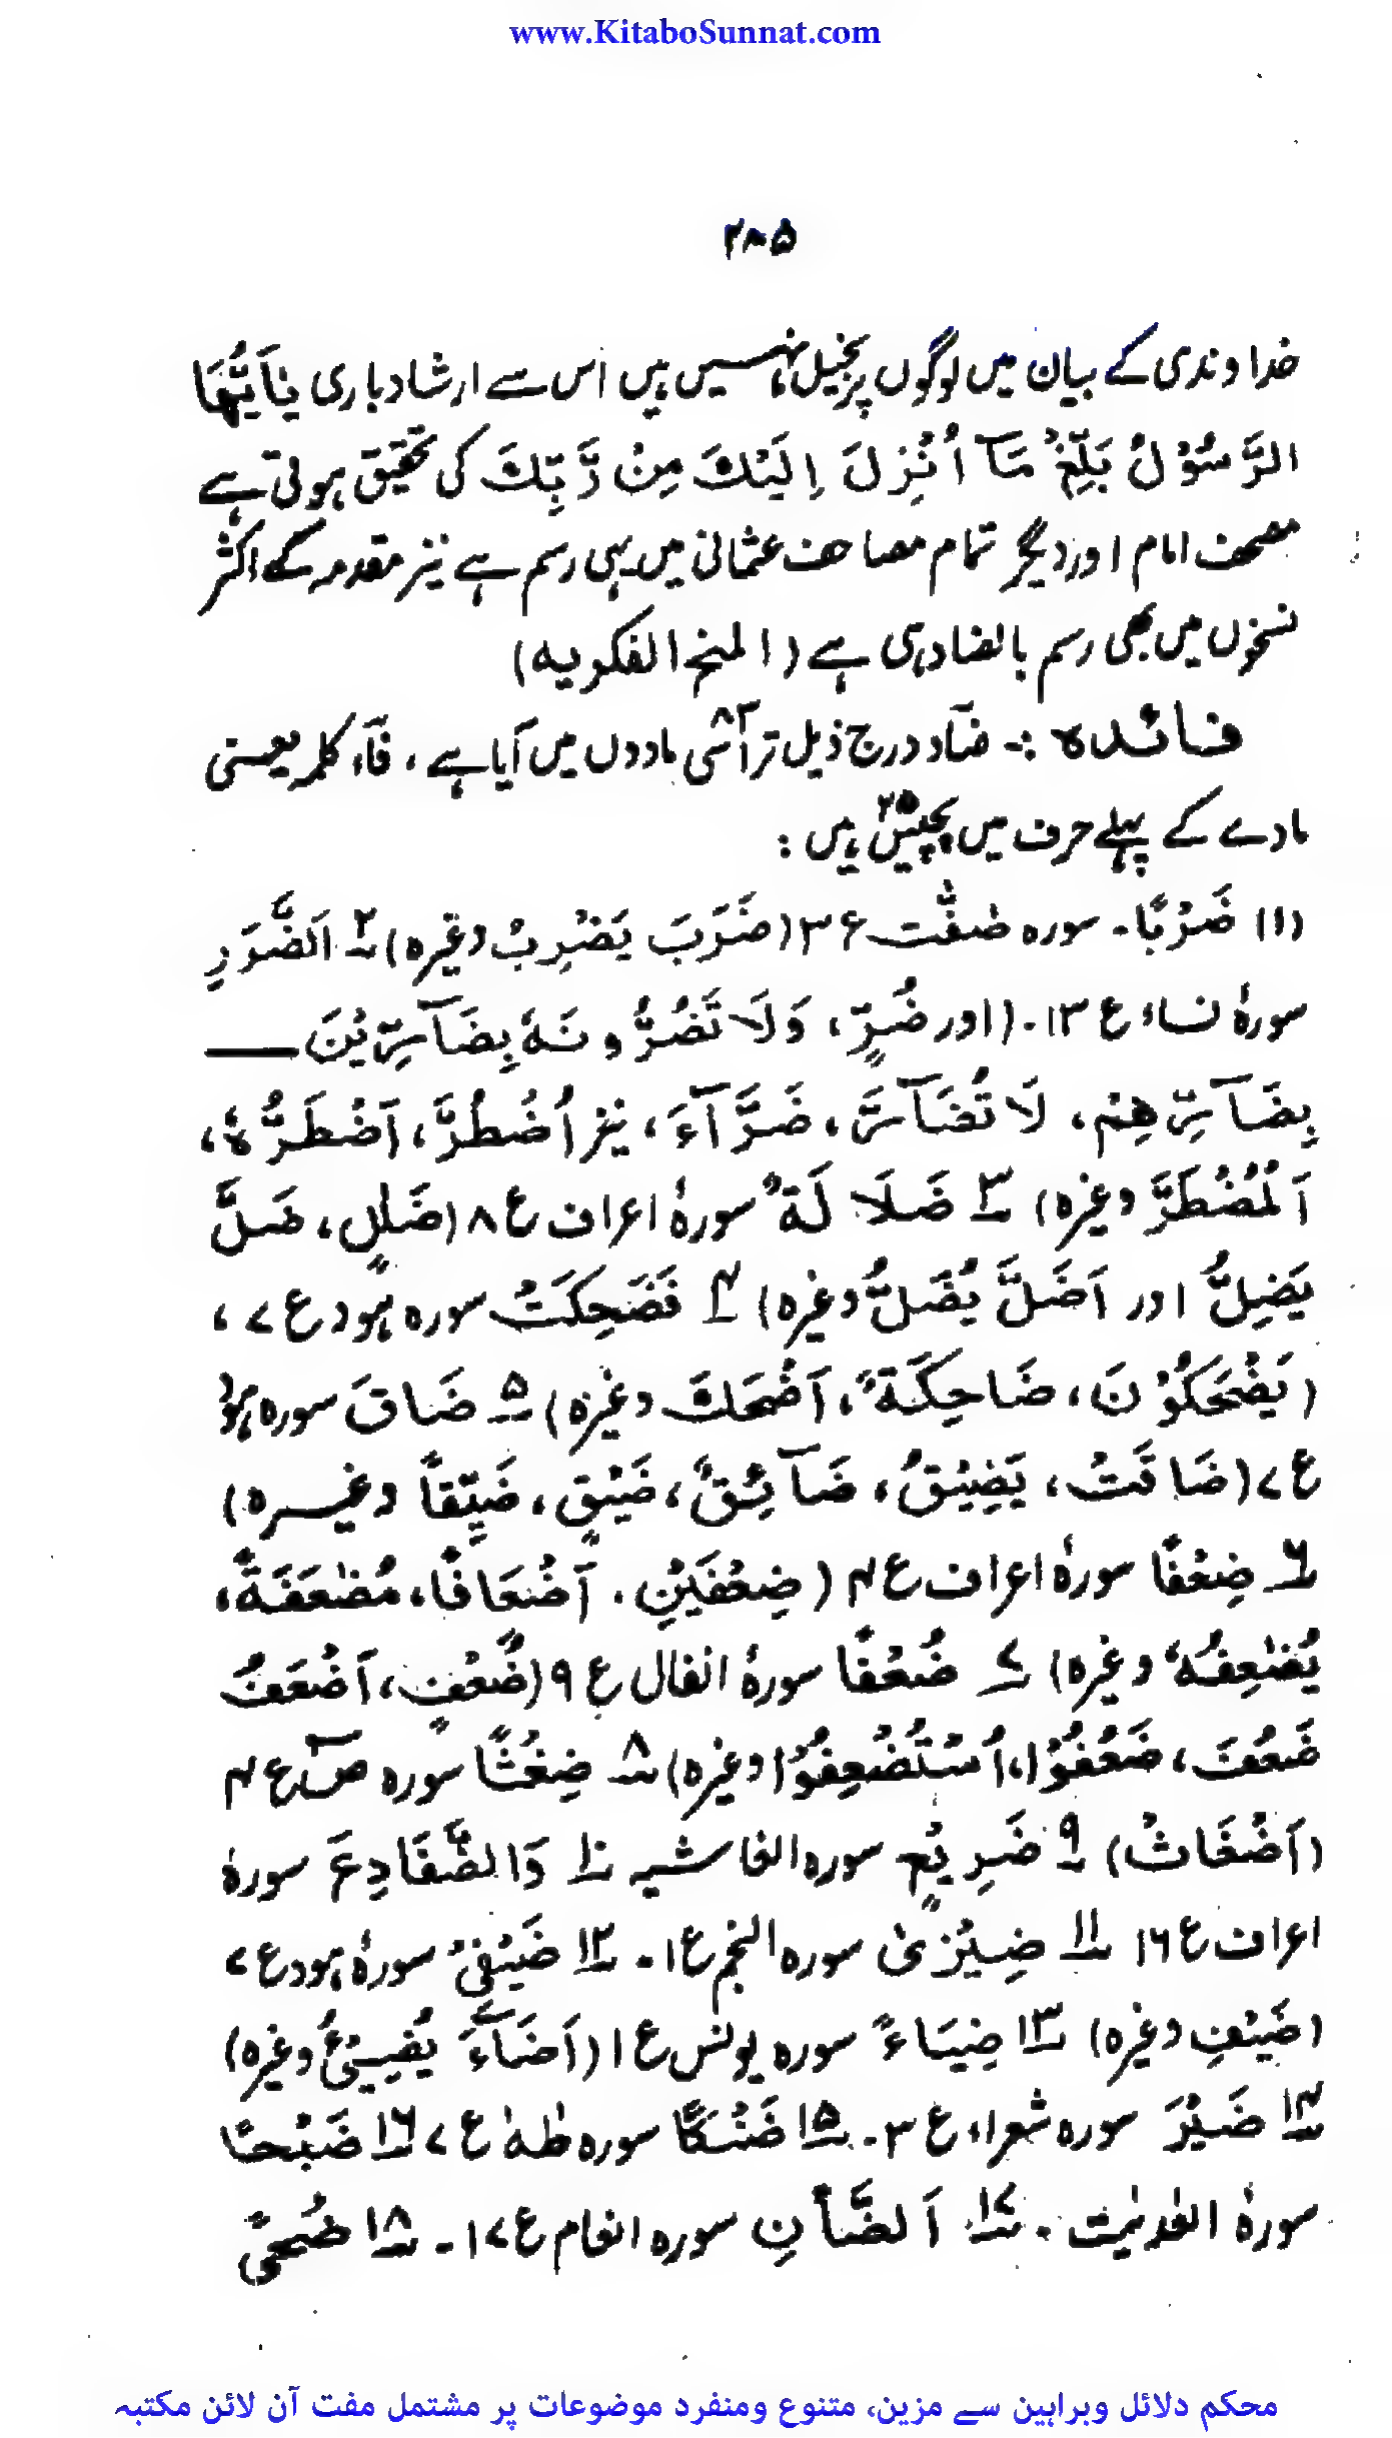 www.KitaboSunnat.com
۲۸۵
خداوندی کے بیان میں لوگوں پر بخیل نہیں ہیں اس سے ارشاد باری يٰٓاَيُّهَا
الرَّسُوْلُ بَلِّغْ مَآ اُنْزِلَ اِلَيْكَ مِنْ رَّبِّكَ کی تحقیق ہوتی ہے
مصحف امام اور دیگر تمام مصاحف عثمانی میں یہی رسم ہے نیز مقدمہ کے اکثر
نسخوں میں بھی رسم بالضاد ہی ہے (المنح الفکریه)
فائدہ :- ضاد درج ذیل تراسی ۸۳ مادوں میں آیا ہے، فآء کلمہ یعنی
مادے کے پہلے حرف میں پچیس ۲۵ ہیں :
(۱) ضَرْبًا۔ سورہ صٰفّٰت ع ۳ (ضَرَبَ يَضْرِبُ وغیرہ) ۲ اَلضَّرَرِ
سورۂ نساء ع ۱۳۔ (اور ضُرٍّ، وَلَا تَضُرُّوْنَهٗ بِضَآرِّيْنَ ــــ
بِضَآرِّهِمْ، لَا تُضَآرَّ، ضَرَّآءَ، نیز اُضْطُرَّ، اَضْطَرُّهٗ،
اَلْمُضْطَرَّ وغیرہ) ۳ ضَلَالَةٌ سورۂ اعراف ع ۸ (ضَلٰلٍ، ضَلَّ
يَضِلُّ اور اَضَلَّ يُضَلُّ وغیرہ) ۴ فَضَحِكَتْ سورہ ہود ع ۷،
(يَضْحَكُوْنَ، ضَاحِكَةٌ، اَضْحَكَ وغیرہ) ۵ ضَاقَ سورہ ہود
ع ۷ (ضَاقَتْ، يَضِيْقُ، ضَآئِقٌ، ضَيْقٍ، ضَيِّقًا وغیرہ)
۶ ضِعْفًا سورۂ اعراف ع ۴ (ضِعْفَيْنِ، اَضْعَافًا، مُضٰعَفَةً،
يُضٰعِفُهٗ وغیرہ) ۷ ضُعْفًا سورۂ انفال ع ۹ (ضُعْفٍ، اَضْعَفُ
ضَعُفَ، ضَعُفُوْا، اُسْتُضْعِفُوْا وغیرہ) ۸ ضِغْثًا سورہ صٓ ع ۴
(اَضْغَاثُ) ۹ ضَرِيْعٍ سورہ الغاشیہ ۱۰ وَالضَّفَادِعَ سورۂ
اعراف ع ۱۶ ۱۱ ضِيْزٰى سورہ النجم ع ۱۔ ۱۲ ضَيْفِىْ سورۂ ہود ع ۷
(ضَيْفِ وغیرہ) ۱۳ ضِيَآءً سورہ یونس ع ۱ (اَضَآءَ يُضِيْئُ وغیرہ)
۱۴ ضَيْرَ سورہ شعراء ع ۳۔ ۱۵ ضَنْكًا سورہ طٰهٰ ع ۷ ۱۶ ضَبْحًا
سورۂ العٰدیٰت ۔ ۱۷ اَلضَّأْنِ سورہ انعام ع ۱۷۔ ۱۸ ضُحًى
محکم دلائل وبراہین سے مزین، متنوع ومنفرد موضوعات پر مشتمل مفت آن لائن مکتبہ